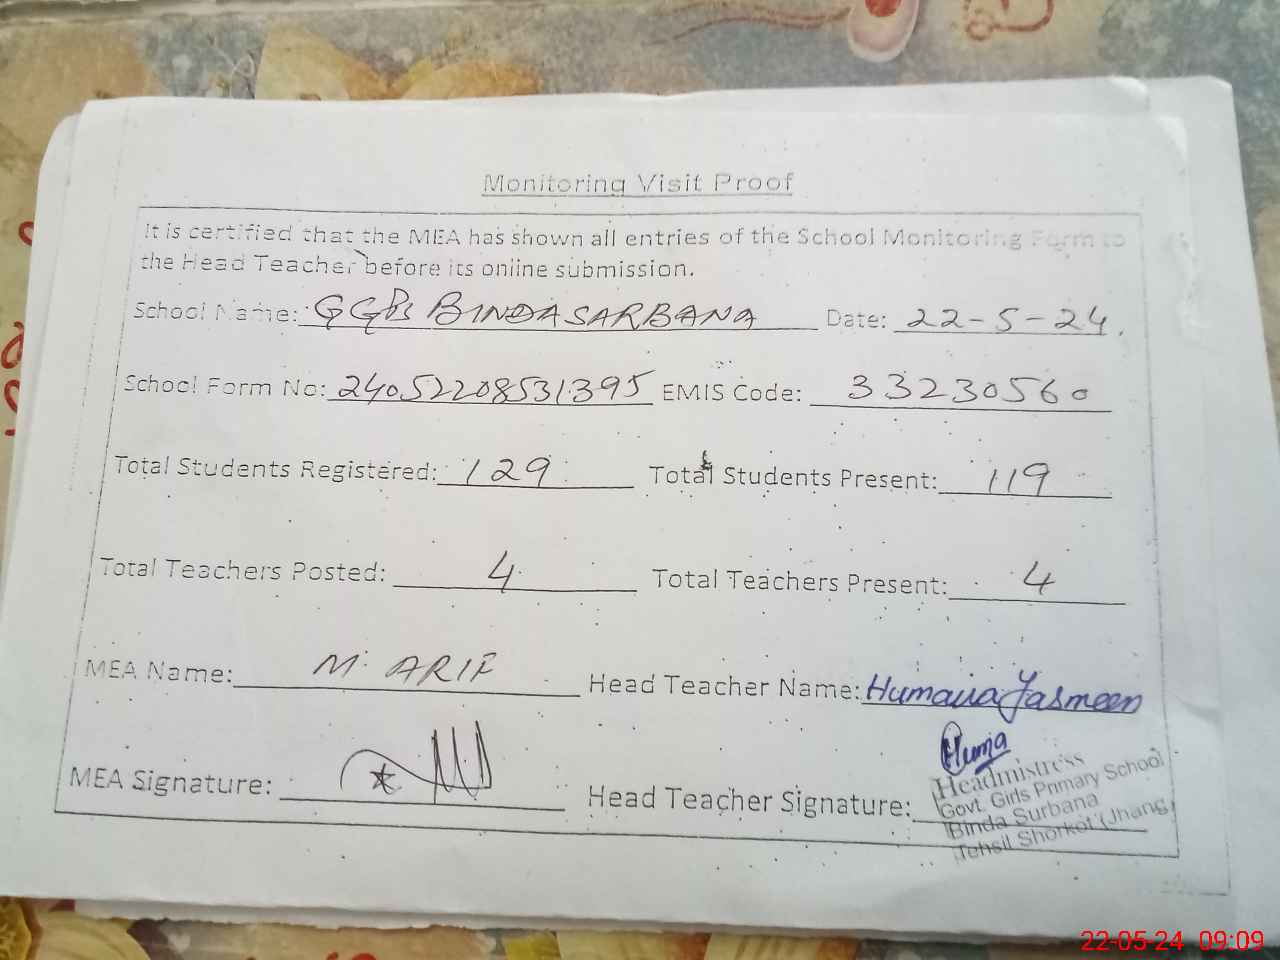 Monitoring Visit Proof
It is certified that the MEA has shown all entries of the School Monitoring Form to
the Head Teacher before its online submission.
School Name: GGPS BINDA SARBANA Date: 22-5-24.
School Form No: 24052208531395 EMIS Code: 33230560
Total Students Registered: 129 Total Students Present: 119
Total Teachers Posted: 4 Total Teachers Present: 4
MEA Name: M. ARIF Head Teacher Name: Humaira Yasmeen
Huma
MEA Signature: Head Teacher Signature:
Headmistress
Govt. Girls Primary School
Binda Surbana
Tehsil Shorkot (Jhang)
22-05-24 09:09